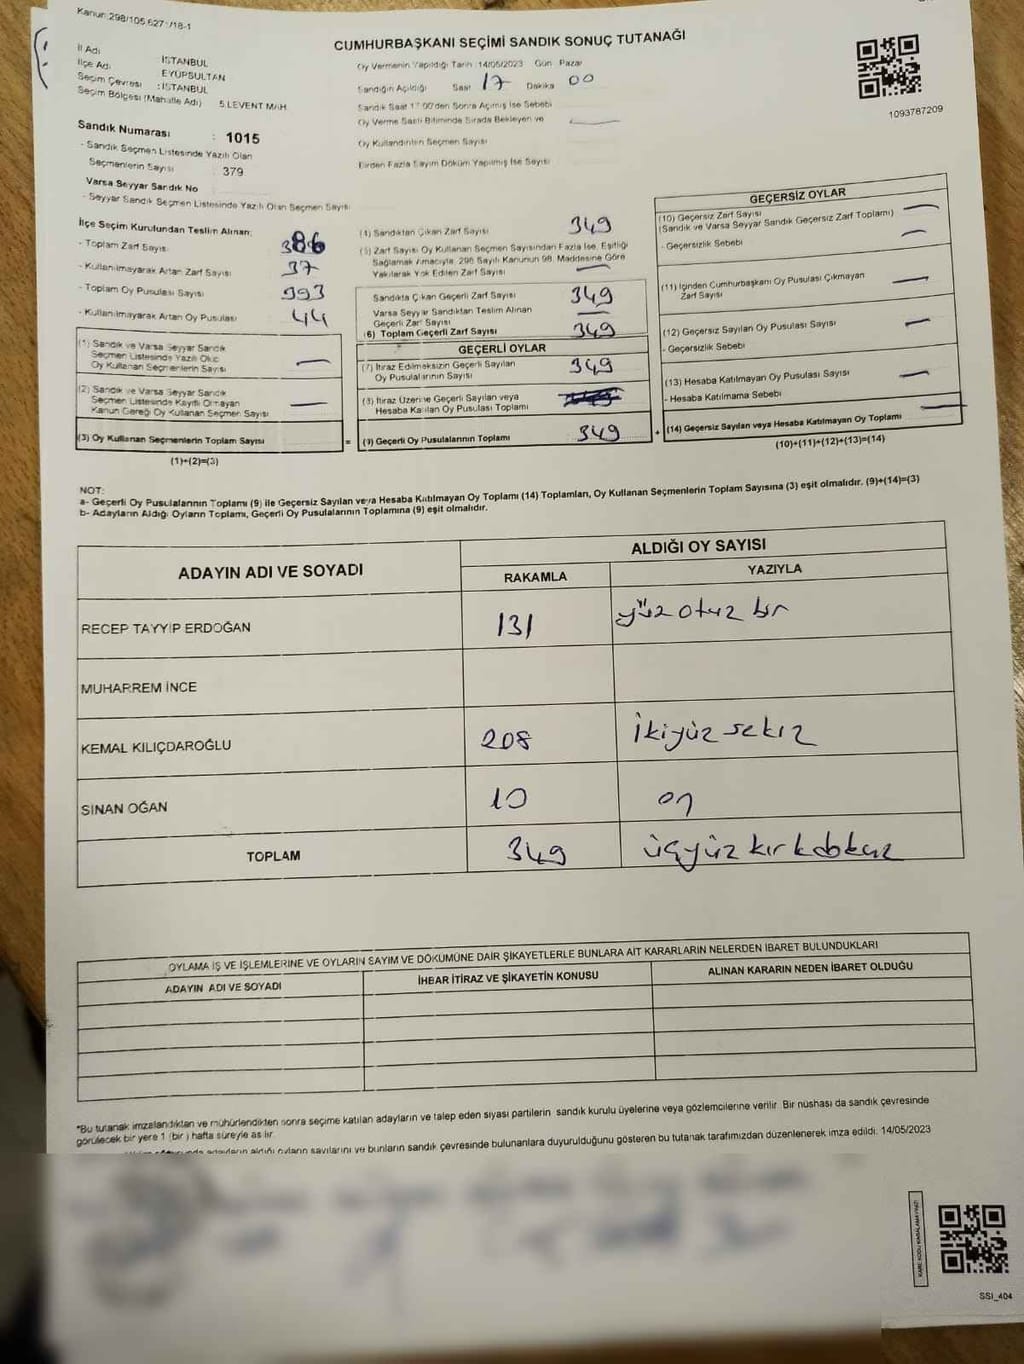 Kanun:298/105,627-/18-1
CUMHURBAŞKANI SEÇİMİ SANDIK SONUÇ TUTANAĞI
İl Adı : İSTANBUL
İlçe Adı EYÜPSULTAN
Seçim Çevresi : İSTANBUL
Seçim Bölgesi (Mahalle Adı) 5.LEVENT MAH.
Sandık Numarası : 1015
- Sandık Seçmen Listesinde Yazılı Olan
Seçmenlerin Sayısı : 379
Varsa Seyyar Sandık No
- Seyyar Sandık Seçmen Listesinde Yazılı Olan Seçmen Sayısı
Oy Vermenin Yapıldığı Tarih :14/05/2023 Gün Pazar
Sandığın Açıldığı Saat 17 Dakika 00
Sandık Saat 17:00'den Sonra Açmış İse Sebebi
Oy Verme Saati Bitiminde Sırada Bekleyen ve
Oy Kullandırılan Seçmen Sayısı
Birden Fazla Sayım Döküm Yapılmış İse Sayısı
1093787209
İlçe Seçim Kurulundan Teslim Alınan:
- Toplam Zarf Sayısı 386
- Kullanılmayarak Artan Zarf Sayısı 37
- Toplam Oy Pusulası Sayısı 393
- Kullanılmayarak Artan Oy Pusulası 44
(1) Sandık ve Varsa Seyyar Sandık
Seçmen Listesinde Yazılı Olup
Oy Kullanan Seçmenlerin Sayısı —
(2) Sandık ve Varsa Seyyar Sandık
Seçmen Listesinde Kayıtlı Olmayan
Kanun Gereği Oy Kullanan Seçmen Sayısı —
(3) Oy Kullanan Seçmenlerin Toplam Sayısı =
(1)+(2)=(3)
(4) Sandıktan Çıkan Zarf Sayısı 349
(5) Zarf Sayısı Oy Kullanan Seçmen Sayısından Fazla İse, Eşitliği
Sağlamak Amacıyla, 298 Sayılı Kanunun 98. Maddesine Göre
Yakılarak Yok Edilen Zarf Sayısı —
Sandıkta Çıkan Geçerli Zarf Sayısı 349
Varsa Seyyar Sandıktan Teslim Alınan
Geçerli Zarf Sayısı —
(6) Toplam Geçerli Zarf Sayısı 349
GEÇERLİ OYLAR
(7) İtiraz Edilmeksizin Geçerli Sayılan
Oy Pusulalarının Sayısı 349
(8) İtiraz Üzerine Geçerli Sayılan veya
Hesaba Katılan Oy Pusulası Toplamı
(9) Geçerli Oy Pusulalarının Toplamı 349
GEÇERSİZ OYLAR
(10) Geçersiz Zarf Sayısı —
(Sandık ve Varsa Seyyar Sandık Geçersiz Zarf Toplamı)
- Geçersizlik Sebebi —
(11) İçinden Cumhurbaşkanı Oy Pusulası Çıkmayan
Zarf Sayısı —
(12) Geçersiz Sayılan Oy Pusulası Sayısı —
- Geçersizlik Sebebi
(13) Hesaba Katılmayan Oy Pusulası Sayısı —
- Hesaba Katılmama Sebebi
+ (14) Geçersiz Sayılan veya Hesaba Katılmayan Oy Toplamı —
(10)+(11)+(12)+(13)=(14)
NOT:
a- Geçerli Oy Pusulalarının Toplamı (9) ile Geçersiz Sayılan veya Hesaba Katılmayan Oy Toplamı (14) Toplamları, Oy Kullanan Seçmenlerin Toplam Sayısına (3) eşit olmalıdır. (9)+(14)=(3)
b- Adayların Aldığı Oyların Toplamı, Geçerli Oy Pusulalarının Toplamına (9) eşit olmalıdır.
ADAYIN ADI VE SOYADI ALDIĞI OY SAYISI
RAKAMLA YAZIYLA
RECEP TAYYİP ERDOĞAN 131 yüz otuz bir
MUHARREM İNCE
KEMAL KILIÇDAROĞLU 208 ikiyüz sekiz
SİNAN OĞAN 10 on
TOPLAM 349 üçyüz kırkdokuz
OYLAMA İŞ VE İŞLEMLERİNE VE OYLARIN SAYIM VE DÖKÜMÜNE DAİR ŞİKAYETLERLE BUNLARA AİT KARARLARIN NELERDEN İBARET BULUNDUKLARI
ADAYIN ADI VE SOYADI İHBAR İTİRAZ VE ŞİKAYETİN KONUSU ALINAN KARARIN NEDEN İBARET OLDUĞU
*Bu tutanak imzalandıktan ve mühürlendikten sonra seçime katılan adayların ve talep eden siyasi partilerin sandık kurulu üyelerine veya gözlemcilerine verilir. Bir nüshası da sandık çevresinde
görülecek bir yere 1 (bir) hafta süreyle asılır.
adayların aldığı oyların sayılarını ve bunların sandık çevresinde bulunanlara duyurulduğunu gösteren bu tutanak tarafımızdan düzenlenerek imza edildi. 14/05/2023
SSI_404